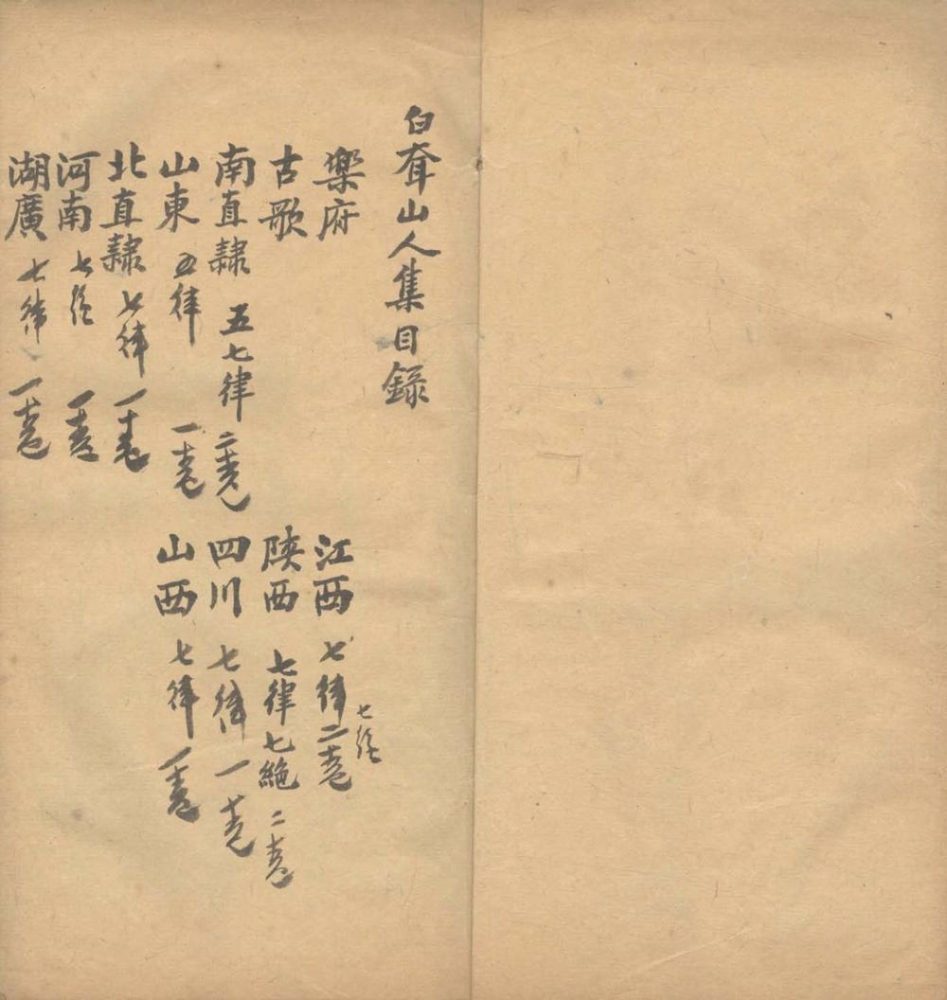 白耷山人集目錄
樂府
古歌
南直隸 五七律 二卷
山東 五律 一卷
北直隸 七律 一卷
河南 七絕 一卷
湖廣 七律 一卷
江西 七律 七絕 二卷
陝西 七律七絕 二卷
四川 七律 一卷
山西 七律 一卷